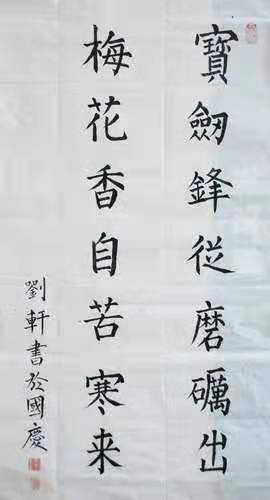 寶劔鋒從磨礪出
梅花香自苦寒来
劉軒書於國慶